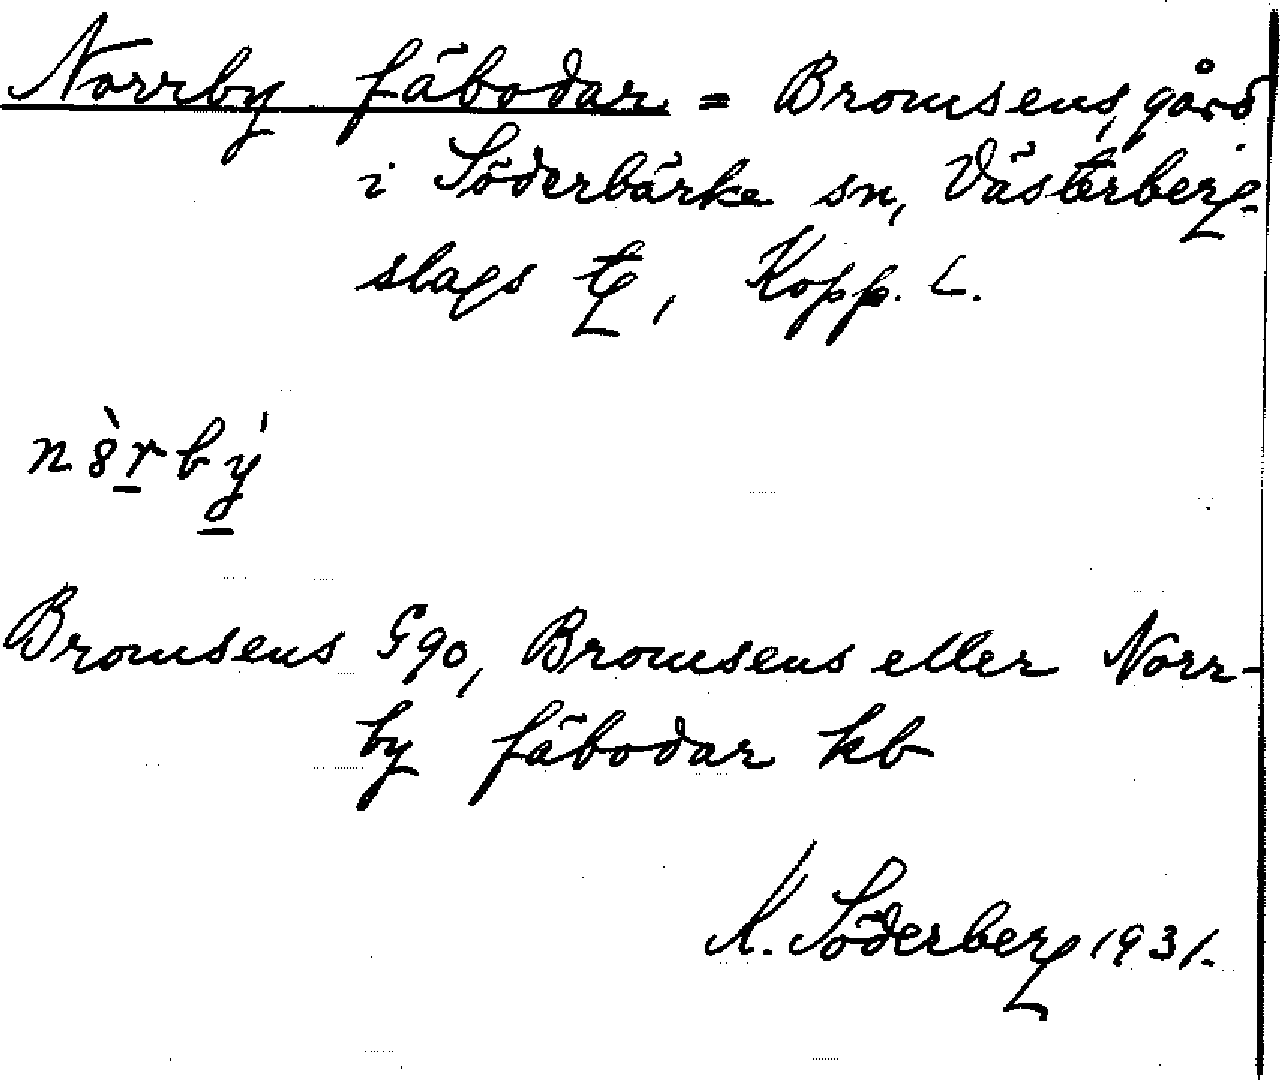 Norrby fäbodar = Bromsens, gård
i Söderbärke sn, Västerberg-
slags tg, Kopp. L.
Bromsens Ggo, Bromsens eller Norr-
by fäbodar kb
K. Söderberg 1931.